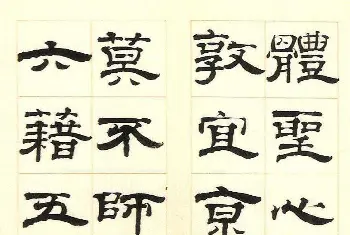 體聖心
敦宜京
莫不師
六藉五